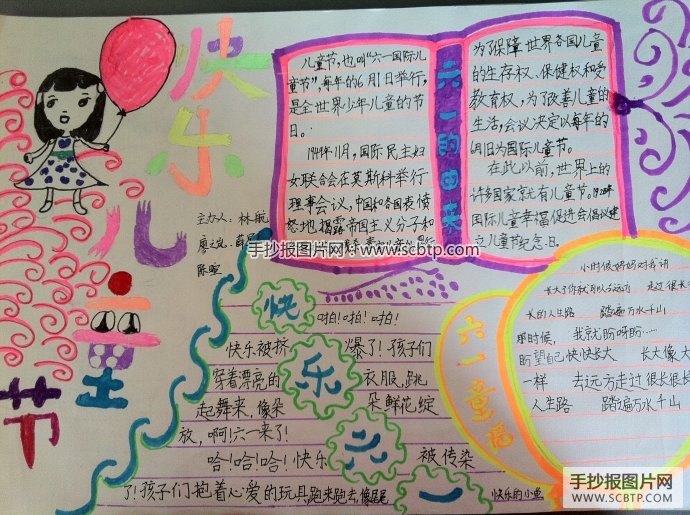 快乐
儿
童
节
主办人：林航
廖之岚、薛
陈暄
儿童节，也叫“六一国际儿
童节”，每年的6月1日举行，
是全世界少年儿童的节
日。
1949年11月，国际民主妇
女联合会在莫斯科举行
理事会议，中国和各国表愤
怒地揭露帝国主义分子和
六一的由来
为了保障世界各国儿童
的生存权、保健权和受
教育权，为了改善儿童的
生活，会议决定以每年的
6月1日为国际儿童节。
在此以前，世界上的
许多国家就有儿童节。
国际儿童幸福促进会倡议建
立儿童节纪念日。
手抄报图片网：www.scbtp.com
快乐六一
啪！啪！啪！
快乐被挤爆了！孩子们
穿着漂亮的衣服，跳
起舞来，像朵朵鲜花绽
放，啊！六一来了！
哈！哈！哈！快乐被传染
了！孩子们抱着心爱的玩具跑来跑去，像尾尾
快乐的小鱼
六一童谣
小时候妈妈对我讲
长大了你就可以去远方 走过很长
长的人生路 踏遍万水千山
那时候，我就盼呀盼……
盼望自己快快长大 长大像大
一样 去远方走过很长很长
人生路 踏遍万水千山
手抄报图片网
WWW.SCBTP.COM